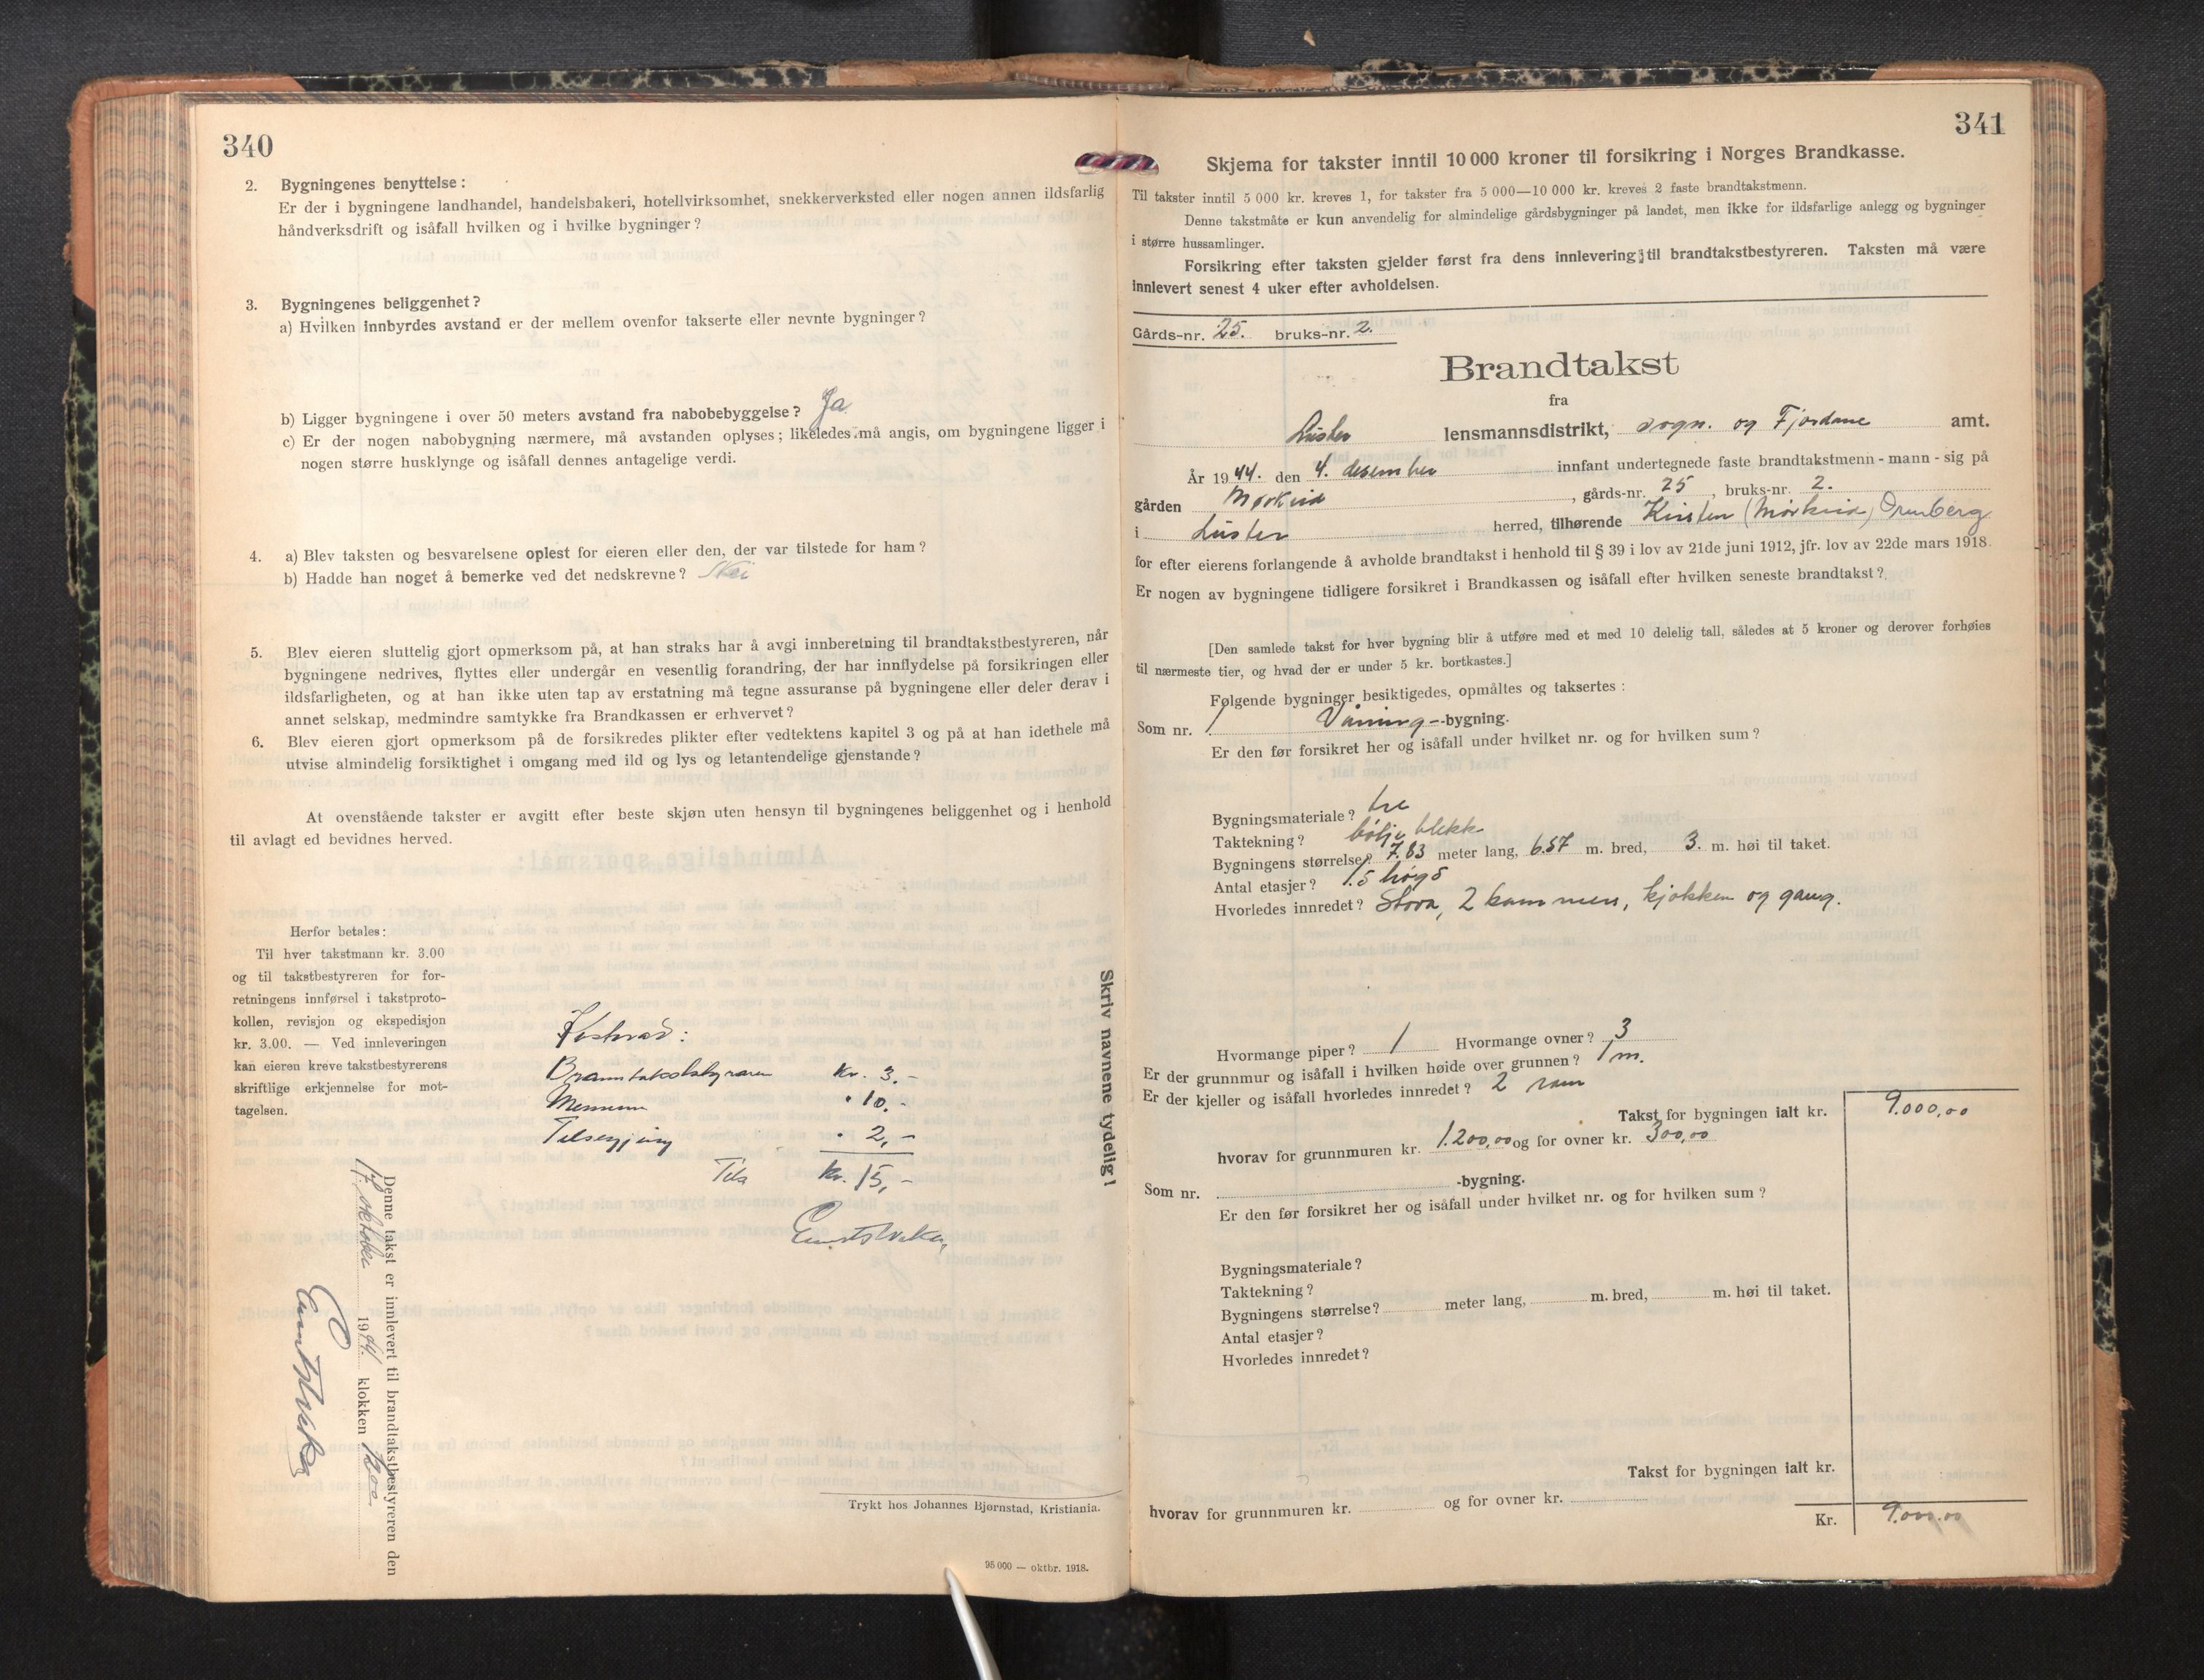 340
2. Bygningenes benyttelse:
Er der i bygningene landhandel, handelsbakeri, hotellvirksomhet, snekkerverksted eller nogen annen ildsfarlig
håndverksdrift og isåfall hvilken og i hvilke bygninger?
3. Bygningenes beliggenhet?
a) Hvilken innbyrdes avstand er der mellem ovenfor takserte eller nevnte bygninger?
b) Ligger bygningene i over 50 meters avstand fra nabobebyggelse? Ja
c) Er der nogen nabobygning nærmere, må avstanden oplyses; likeledes må angis, om bygningene ligger i
nogen større husklynge og isåfall dennes antagelige verdi.
4. a) Blev taksten og besvarelsene oplest for eieren eller den, der var tilstede for ham?
b) Hadde han noget å bemerke ved det nedskrevne?
5. Blev eieren sluttelig gjort opmerksom på, at han straks har å avgi innberetning til brandtakstbestyreren, når
bygningene nedrives, flyttes eller undergår en vesentlig forandring, der har innflydelse på forsikringen eller
ildsfarligheten, og at han ikke uten tap av erstatning må tegne assuranse på bygningene eller deler derav i
annet selskap, medmindre samtykke fra Brandkassen er erhvervet?
6. Blev eieren gjort opmerksom på de forsikredes plikter efter vedtektens kapitel 3 og på at han idethele må
utvise almindelig forsiktighet i omgang med ild og lys og letantendelige gjenstande?
At ovenstående takster er avgitt efter beste skjøn uten hensyn til bygningenes beliggenhet og i henhold
til avlagt ed bevidnes herved.
Herfor betales:
Til hver takstmann kr. 3.00
og til takstbestyreren for for-
retningens innførsel i takstproto-
kollen, revisjon og ekspedisjon
kr. 3.00. — Ved innleveringen
kan eieren kreve takstbestyrerens
skriftlige erkjennelse for mot-
tagelsen.
Kostnad:
Branntakstbestyraren kr. 3.-
Mennene " 10.-
" 2,-
Til kr. 15,-
Denne takst er innlevert til brandtakstbestyreren den
17. oktober 1944. klokken 12.00
Skriv navnene tydelig!
Trykt hos Johannes Bjørnstad, Kristiania.
95 000 — oktbr. 1918.
341
Skjema for takster inntil 10 000 kroner til forsikring i Norges Brandkasse.
Til takster inntil 5 000 kr. kreves 1, for takster fra 5 000—10 000 kr. kreves 2 faste brandtakstmenn.
Denne takstmåte er kun anvendelig for almindelige gårdsbygninger på landet, men ikke for ildsfarlige anlegg og bygninger
i større hussamlinger.
Forsikring efter taksten gjelder først fra dens innlevering til brandtakstbestyreren. Taksten må være
innlevert senest 4 uker efter avholdelsen.
Gårds-nr. 25. bruks-nr. 2.
Brandtakst
fra
Luster lensmannsdistrikt, Sogn. og Fjordane amt.
År 1944. den 4. desember innfant undertegnede faste brandtakstmenn - mann - sig på
gården Mørkrid, gårds-nr. 25, bruks-nr. 2.
i Luster herred, tilhørende Kirsten (Mørkrid) Ormberg
for efter eierens forlangende å avholde brandtakst i henhold til § 39 i lov av 21de juni 1912, jfr. lov av 22de mars 1918.
Er nogen av bygningene tidligere forsikret i Brandkassen og isåfall efter hvilken seneste brandtakst?
[Den samlede takst for hver bygning blir å utføre med et med 10 delelig tall, således at 5 kroner og derover forhøies
til nærmeste tier, og hvad der er under 5 kr. bortkastes.]
Følgende bygninger besiktigedes, opmåltes og taksertes:
Som nr. 1 Våning-bygning.
Er den før forsikret her og isåfall under hvilket nr. og for hvilken sum?
Bygningsmateriale? tre
Taktekning? bølje blekk
Bygningens størrelse? 7.83 meter lang, 6.57 m. bred, 3. m. høi til taket.
Antal etasjer? 1.5 høgd
Hvorledes innredet? Stova, 2 kammers, kjøkken og gang.
Hvormange piper? 1 Hvormange ovner? 3
Er der grunnmur og isåfall i hvilken høide over grunnen? 1 m.
Er der kjeller og isåfall hvorledes innredet? 2 rom
Takst for bygningen ialt kr. 9.000,00
hvorav for grunnmuren kr. 1.200,00 og for ovner kr. 300,00
Som nr. -bygning.
Er den før forsikret her og isåfall under hvilket nr. og for hvilken sum?
Bygningsmateriale?
Taktekning?
Bygningens størrelse? meter lang, m. bred, m. høi til taket.
Antal etasjer?
Hvorledes innredet?
Takst for bygningen ialt kr.
hvorav for grunnmuren kr. og for ovner kr.
Kr. 9.000.00